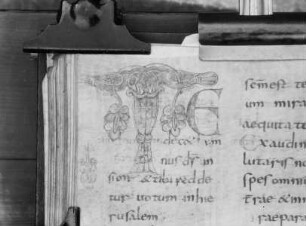 TE
decet ym
nus dꝰ in
sion & tibi redde
tur uotum inhie
rusalem
um mira
aequita te
Exaudin
lutaris no
spes omniu
trae & in
raepara